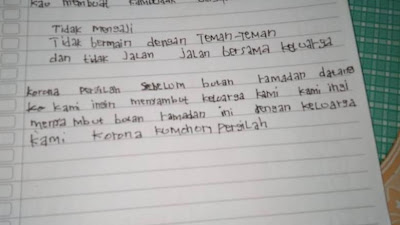 kau membuat
Tidak mengaji
Tidak bermain dengan Teman-Teman
dan tidak Jalan Jalan bersama keluarga
korona pergilah sebelum bulan ramadan datang
ke kami ingin menyambut keluarga kami kami ingi
menya mbut bulan ramadan ini dengan keluarga
kami korona kumohon pergilah